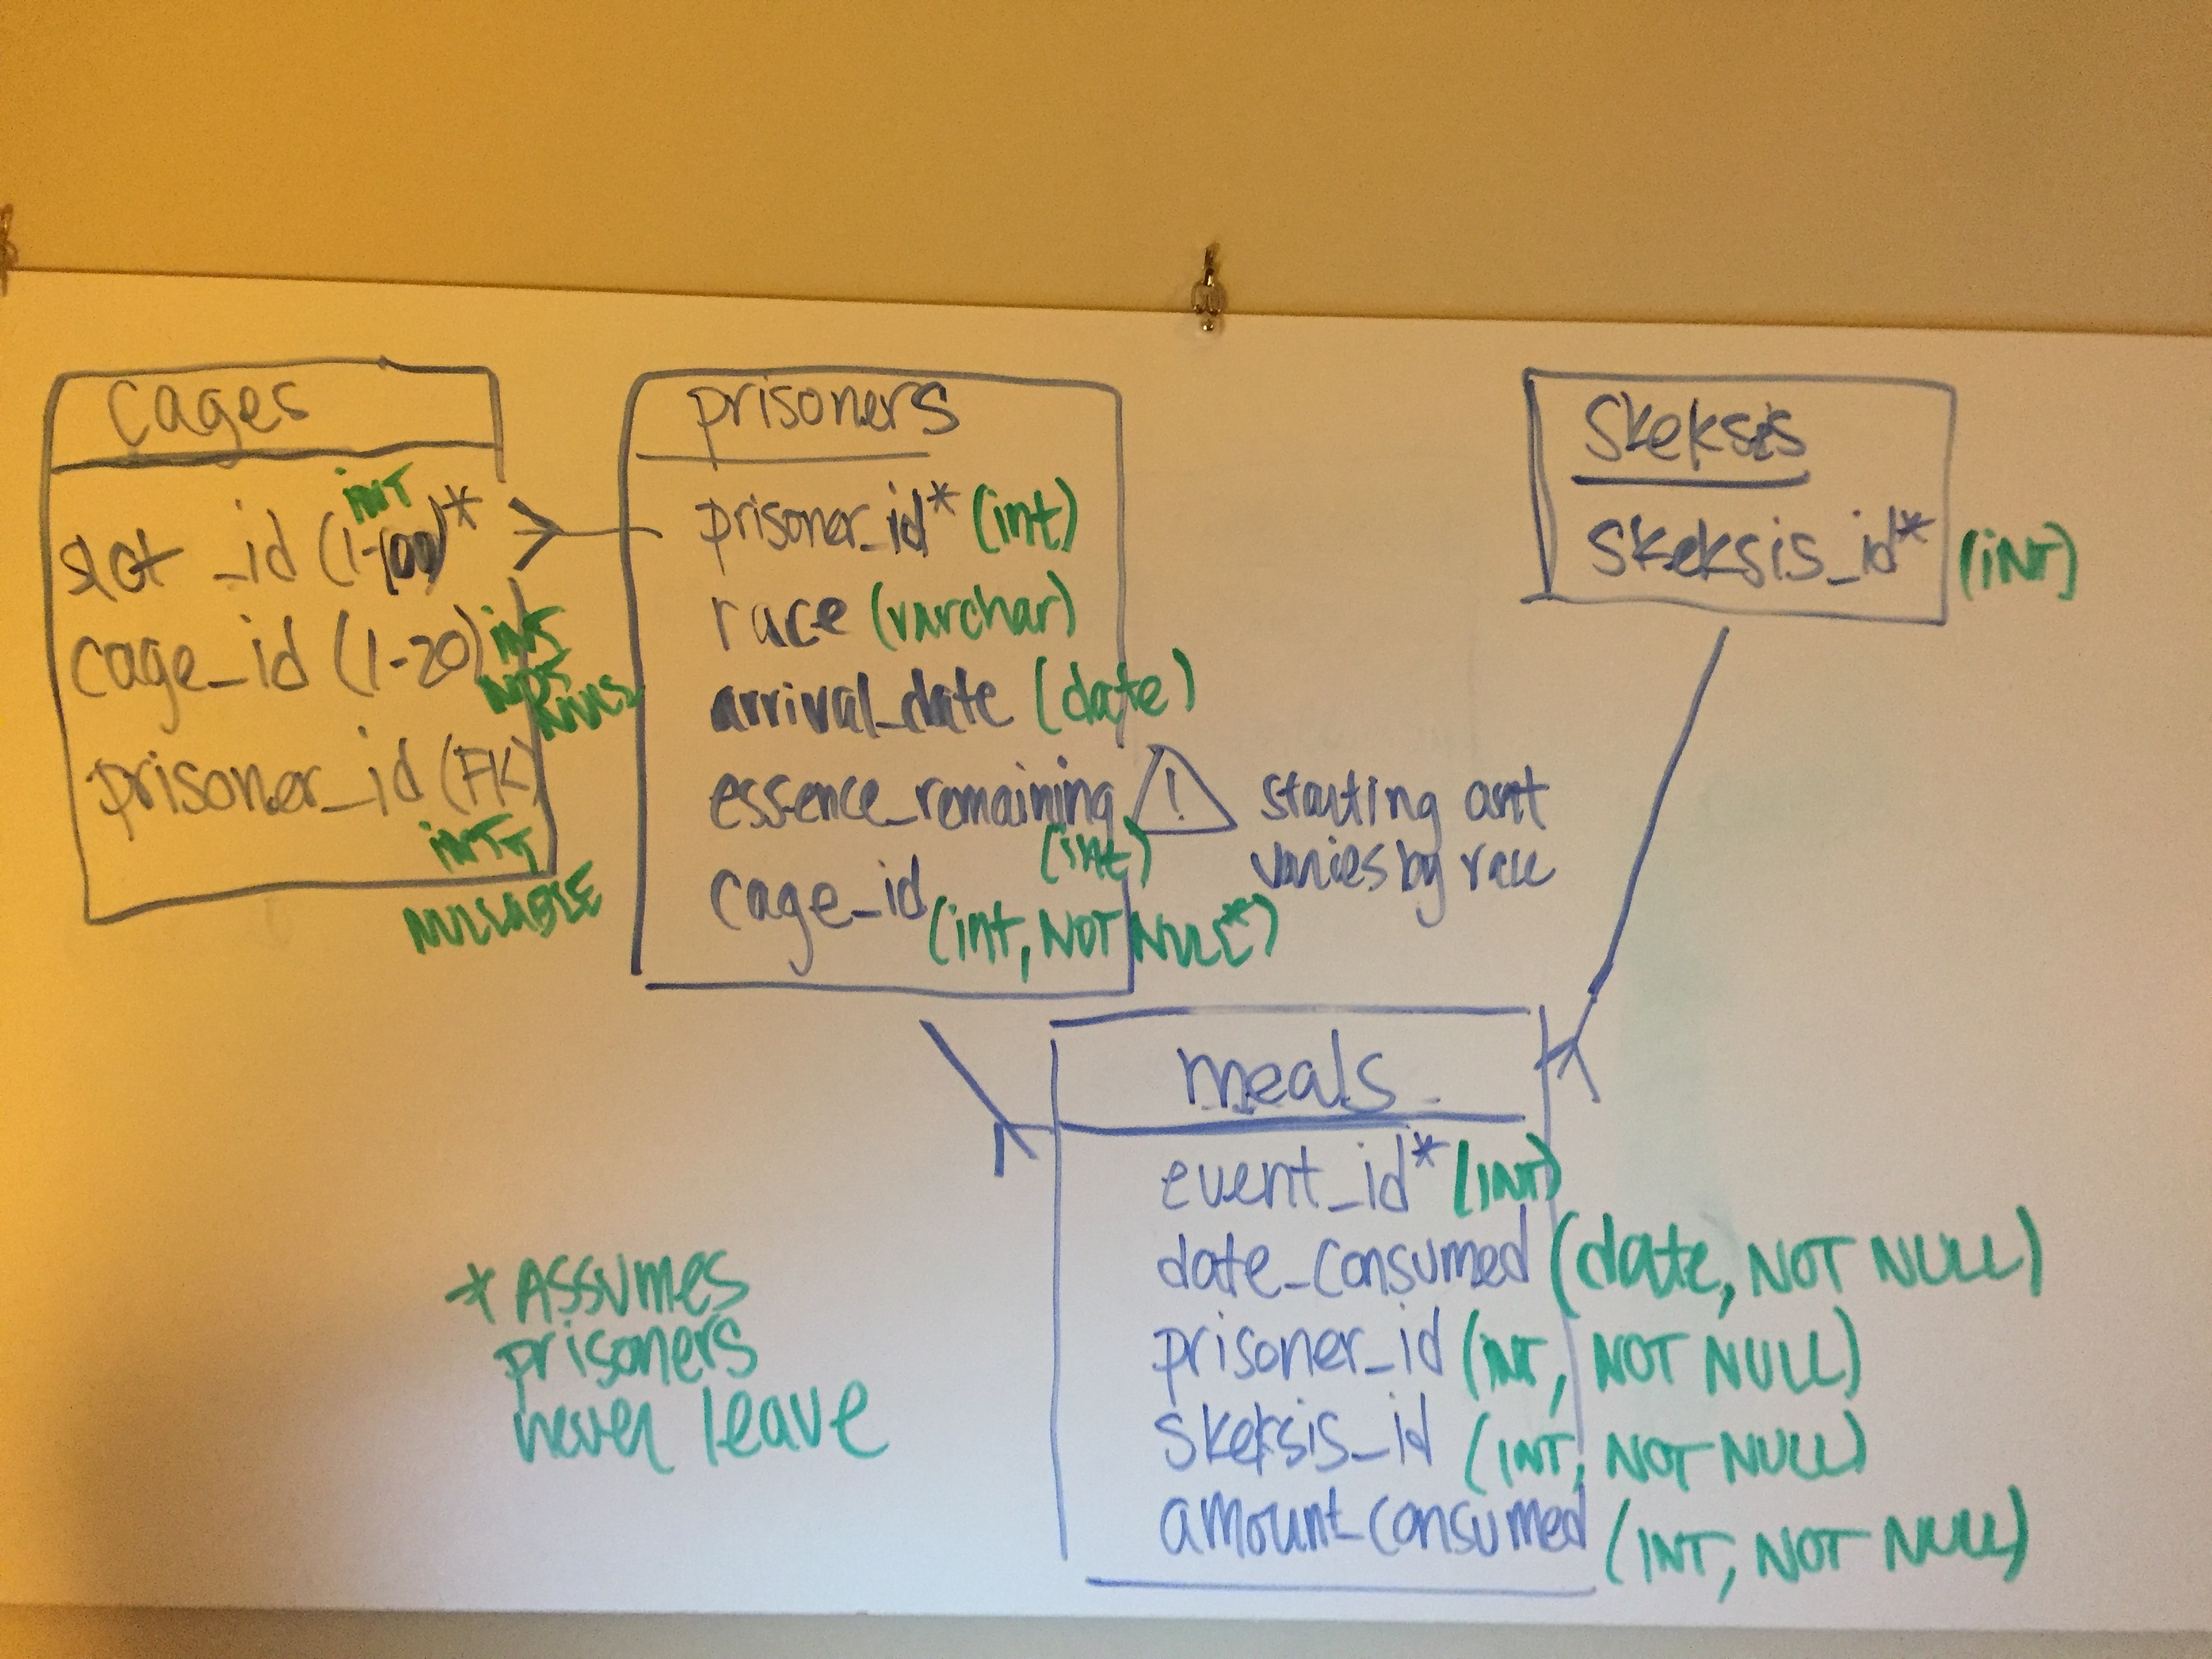 cages
slot_id (1-100)*
INT
cage_id (1-20)
INT
NOT
NULL
prisoner_id (FK)
INT
NULLABLE
prisoners
prisoner_id* (int)
race (varchar)
arrival_date (date)
essence_remaining
(int)
! starting amt
varies by race
cage_id (int, NOT NULL*)
skeksis
skeksis_id* (INT)
meals
event_id* (INT)
date_consumed (date, NOT NULL)
prisoner_id (INT, NOT NULL)
skeksis_id (INT, NOT NULL)
amount_consumed (INT, NOT NULL)
* ASSUMES
prisoners
never leave